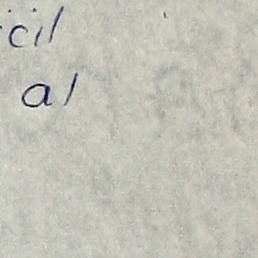 cil
al